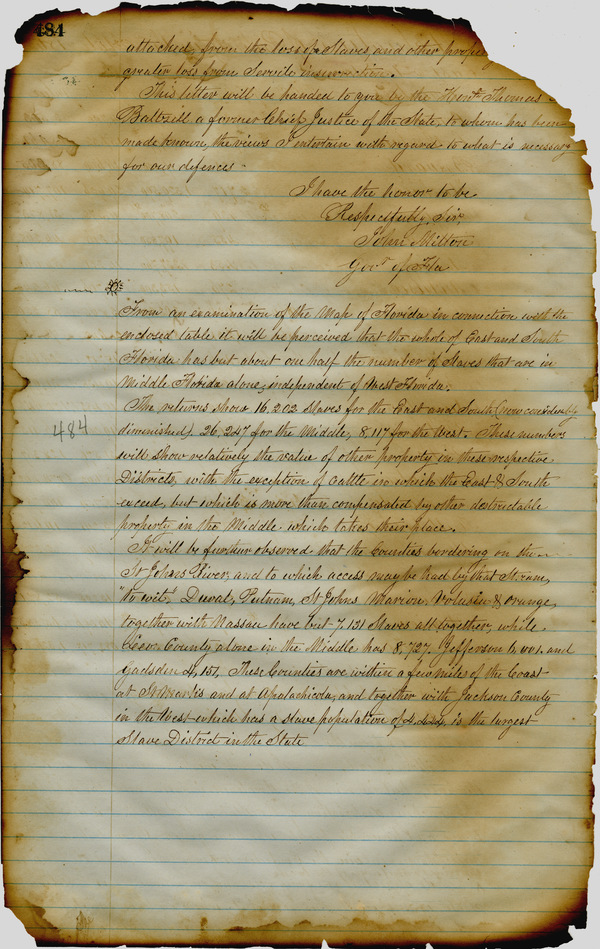 484
attached, from the loss of Slaves, and other
greater loss from Servile insurrection.
This letter will be handed to you by the Honl. Thomas
Baltzell a former Chief Justice of the State, to whom has been
made known, the views I entertain with regard to what is necessary
for our defences
I have the honor to be
Respectfully, Sir,
John Milton
Govr. of Fla
From an examination of the Map of Florida in connection with the
enclosed table it will be perceived that the whole of East and South
Florida has but about one half the number of Slaves that are in
Middle Florida alone, independent of West Florida.
The returns show 16,202 Slaves for the East and South (now considerably
diminished) 26,247 for the Middle, 8,117 for the West. These numbers
will show relatively the value of other property in these respective
Districts, with the exception of Cattle in which the East & South
exceed, but which is more than compensated by other destructable
property in the Middle which takes their place.
484
It will be further observed that the Counties bordering on the
St Johns River, and to which access may be had by that Stream,
"to wit," Duval, Putnam, St Johns Marion, Volusia & Orange,
together with Nassau have but 7,131 Slaves all together, while
Leon County alone in the Middle has 8,727. Jefferson and
Gadsden 4,151, These Counties are within a few miles of the Coast
at St Marks and at Apalachicola, and together with Jackson County
in the West which has a slave population of is the largest
Slave District in the State